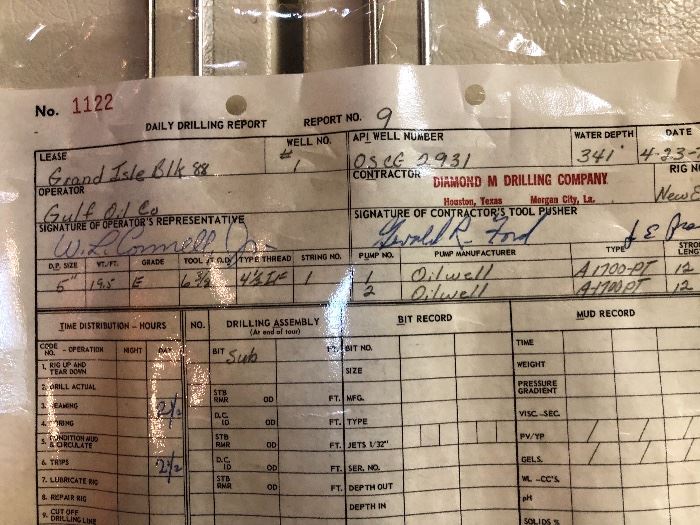 No. 1122
DAILY DRILLING REPORT REPORT NO. 9
LEASE WELL NO. API WELL NUMBER WATER DEPTH DATE
Grand Isle Blk 88 # 1 OSCG 2931 341' 4-23-
OPERATOR CONTRACTOR DIAMOND M DRILLING COMPANY RIG N
Gulf Oil Co Houston, Texas Morgan City, La. New
SIGNATURE OF OPERATOR'S REPRESENTATIVE SIGNATURE OF CONTRACTOR'S TOOL PUSHER
W. L. Connell Jr. Gerald R. Ford J E
D.P. SIZE WT./FT. GRADE TOOL JT. O.D. TYPE THREAD STRING NO. PUMP NO. PUMP MANUFACTURER TYPE STRO LENG
5" 19.5 E 6 3/8 4½ IF 1 1 Oilwell A-1700-PT 12
2 Oilwell A-1700PT 12
TIME DISTRIBUTION - HOURS NO. DRILLING ASSEMBLY BIT RECORD MUD RECORD
(At end of tour)
CODE NO. - OPERATION NIGHT DAY BIT Sub FT. BIT NO. TIME
1. RIG UP AND TEAR DOWN SIZE WEIGHT
2. DRILL ACTUAL STB RMR OD FT. MFG. PRESSURE GRADIENT
3. REAMING 2½ D.C. ID OD FT. TYPE VISC.-SEC.
4. CORING STB RMR OD FT. JETS 1/32" PV/YP
5. CONDITION MUD & CIRCULATE GELS.
6. TRIPS 2½ D.C. ID OD FT. SER. NO. WL -CC'S.
7. LUBRICATE RIG STB RMR OD FT. DEPTH OUT pH
8. REPAIR RIG DEPTH IN
9. CUT OFF DRILLING LINE SOLIDS %